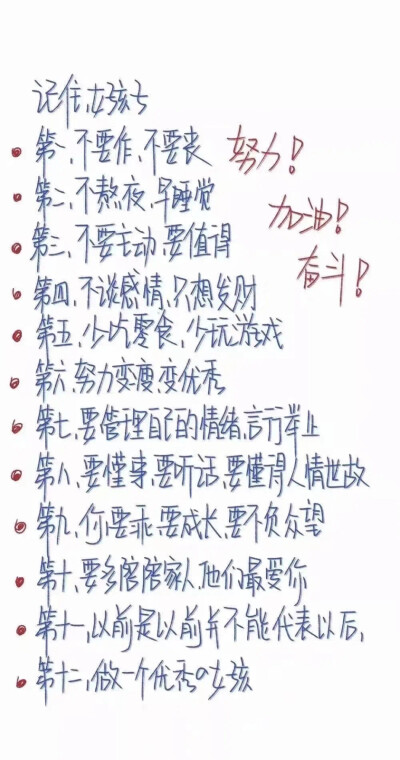 记住,女孩子
第一、不要作、不要丧
努力!
第二、不熬夜,早睡觉
加油!
第三、不要主动、要值得
奋斗!
第四、不谈感情、只想发财
第五、少吃零食,少玩游戏
第六、努力变瘦,变优秀
第七、要管理自己的情绪,言行举止
第八、要懂事、要听话、要懂得人情世故
第九、你要乖、要成长、要不负众望
第十、要多陪陪家人,他们最爱你
第十一、以前是以前并不能代表以后,
第十二、做一个优秀的女孩